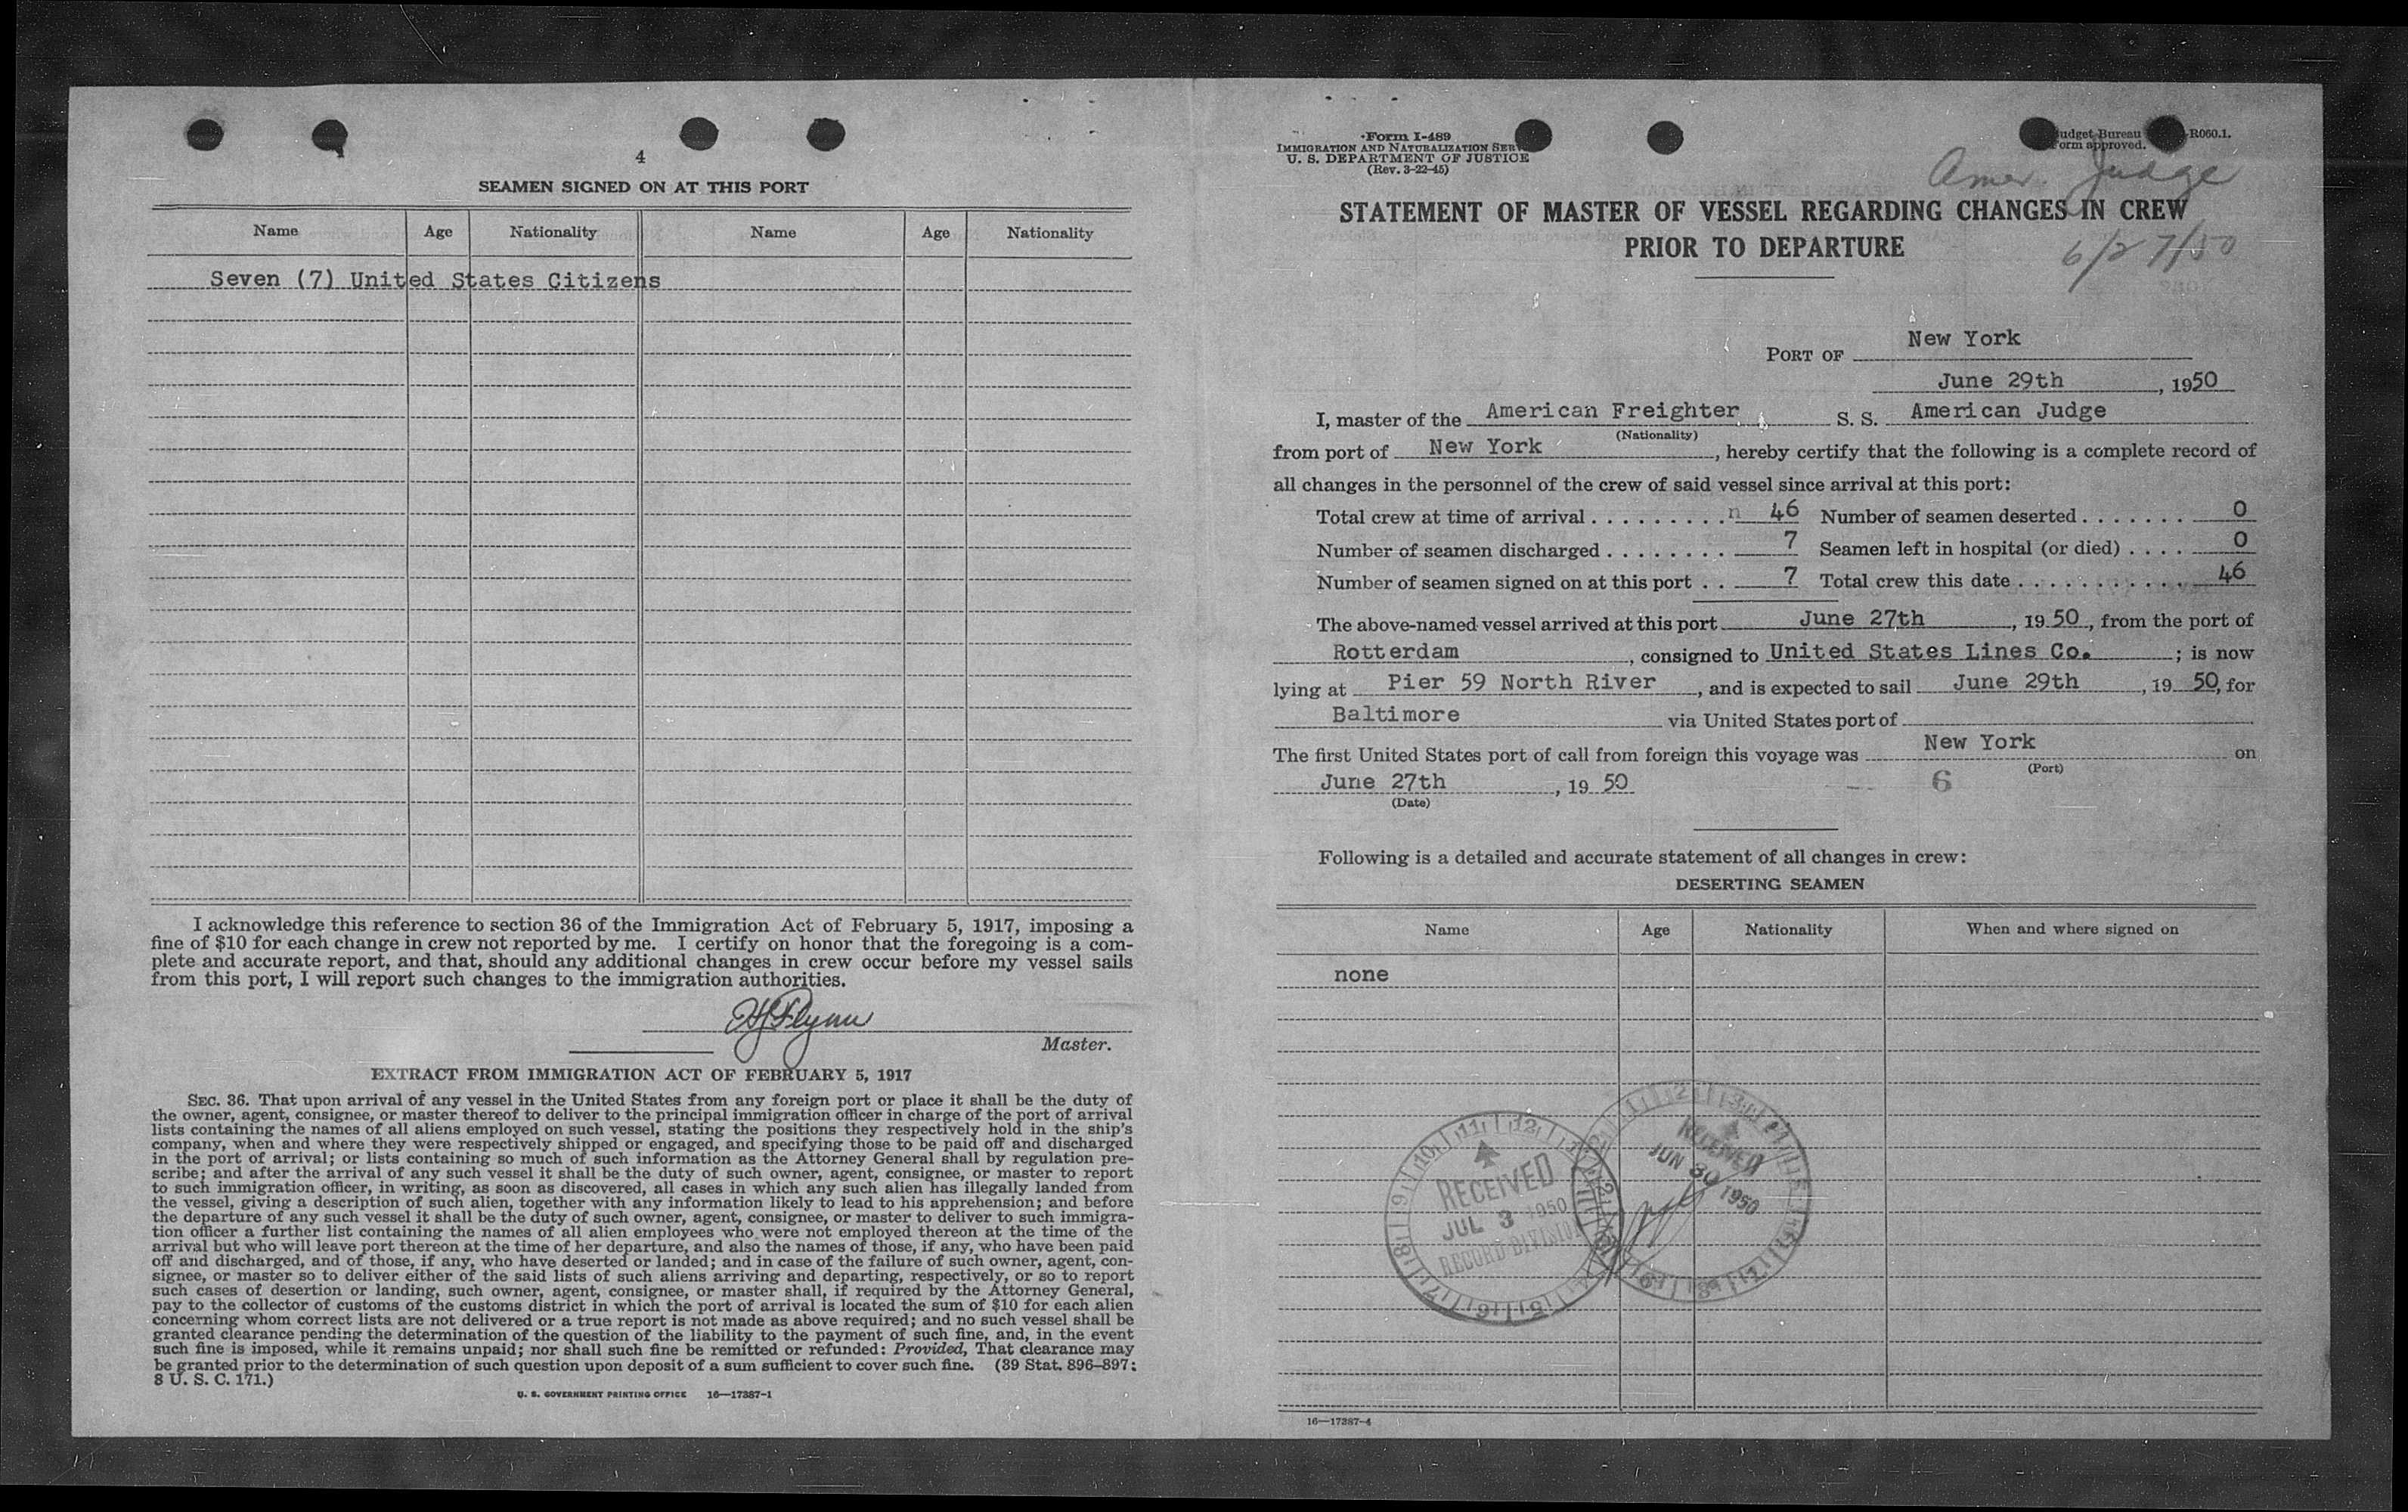 4
SEAMEN SIGNED ON AT THIS PORT
Name Age Nationality Name Age Nationality
Seven (7) United States Citizens
I acknowledge this reference to section 36 of the Immigration Act of February 5, 1917, imposing a
fine of $10 for each change in crew not reported by me. I certify on honor that the foregoing is a com-
plete and accurate report, and that, should any additional changes in crew occur before my vessel sails
from this port, I will report such changes to the immigration authorities.
HJFlynn
Master.
EXTRACT FROM IMMIGRATION ACT OF FEBRUARY 5, 1917
SEC. 36. That upon arrival of any vessel in the United States from any foreign port or place it shall be the duty of
the owner, agent, consignee, or master thereof to deliver to the principal immigration officer in charge of the port of arrival
lists containing the names of all aliens employed on such vessel, stating the positions they respectively hold in the ship's
company, when and where they were respectively shipped or engaged, and specifying those to be paid off and discharged
in the port of arrival; or lists containing so much of such information as the Attorney General shall by regulation pre-
scribe; and after the arrival of any such vessel it shall be the duty of such owner, agent, consignee, or master to report
to such immigration officer, in writing, as soon as discovered, all cases in which any such alien has illegally landed from
the vessel, giving a description of such alien, together with any information likely to lead to his apprehension; and before
the departure of any such vessel it shall be the duty of such owner, agent, consignee, or master to deliver to such immigra-
tion officer a further list containing the names of all alien employees who were not employed thereon at the time of the
arrival but who will leave port thereon at the time of her departure, and also the names of those, if any, who have been paid
off and discharged, and of those, if any, who have deserted or landed; and in case of the failure of such owner, agent, con-
signee, or master so to deliver either of the said lists of such aliens arriving and departing, respectively, or so to report
such cases of desertion or landing, such owner, agent, consignee, or master shall, if required by the Attorney General,
pay to the collector of customs of the customs district in which the port of arrival is located the sum of $10 for each alien
concerning whom correct lists are not delivered or a true report is not made as above required; and no such vessel shall be
granted clearance pending the determination of the question of the liability to the payment of such fine, and, in the event
such fine is imposed, while it remains unpaid; nor shall such fine be remitted or refunded: Provided, That clearance may
be granted prior to the determination of such question upon deposit of a sum sufficient to cover such fine. (39 Stat. 896–897;
8 U. S. C. 171.)
U. S. GOVERNMENT PRINTING OFFICE 16—17387-1
Form I-489
IMMIGRATION AND NATURALIZATION SER
U. S. DEPARTMENT OF JUSTICE
(Rev. 3-22-45)
udget Bureau R060.1.
orm approved.
Amer. Judge
STATEMENT OF MASTER OF VESSEL REGARDING CHANGES IN CREW
PRIOR TO DEPARTURE
6/27/50
PORT OF New York
June 29th, 1950
I, master of the American Freighter S. S. American Judge
(Nationality)
from port of New York, hereby certify that the following is a complete record of
all changes in the personnel of the crew of said vessel since arrival at this port:
Total crew at time of arrival . . . . . . . . . n 46 Number of seamen deserted . . . . . . . 0
Number of seamen discharged . . . . . . . . 7 Seamen left in hospital (or died) . . . . 0
Number of seamen signed on at this port . . 7 Total crew this date . . . . . . . . . . . 46
The above-named vessel arrived at this port June 27th, 1950, from the port of
Rotterdam, consigned to United States Lines Co.; is now
lying at Pier 59 North River, and is expected to sail June 29th, 1950, for
Baltimore via United States port of
The first United States port of call from foreign this voyage was New York on
(Port)
June 27th, 1950 6
(Date)
Following is a detailed and accurate statement of all changes in crew:
DESERTING SEAMEN
Name Age Nationality When and where signed on
none
RECEIVED
JUN 30 1950
RECEIVED
JUL 3 1950
RECORD DIVISION
16—17387-4